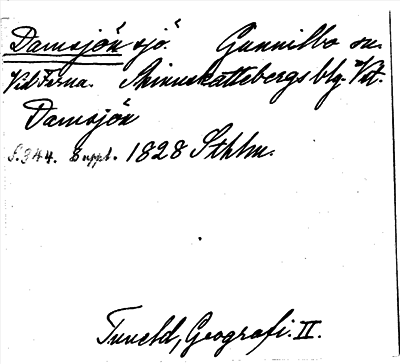 Damsjön sjö. Gunnilbo sn.
Vid Färna. Skinnskattebergs blg. Vstm.
Damsjön
S. 344. Suppl. 1828 Sthlm.
Tuneld, Geografi. II.